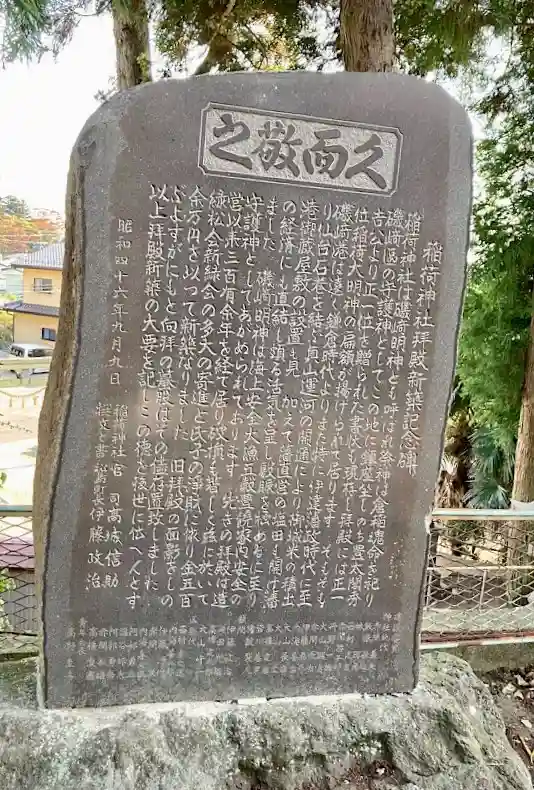 久而敬之
稲荷神社拝殿新築記念碑
稲荷神社は磯崎明神とも呼ばれ祭神は倉稲魂命を祀り
磯崎区の守護神としてこの地に鎮座坐しのち豊太閤秀
吉公より正一位を贈られた書状も現存し拝殿には正一
位稲荷大明神の扁額が掲げられて居ります そもそも
磯崎港は遠く鎌倉時代よりまた特に伊達藩政時代に至
り仙台石巻を結ぶ貞山運河の開通により御城米の積出
港御蔵屋敷の設置も見 加えて藩直営の塩田も開け藩
の経済にも直結し頗る活気を呈し殷賑を極めるに至り
ました 磯崎明神は海上安全大漁五穀豊饒家内安全の
守護神としてあがめられております 先きの拝殿は造
営以来三百有余年を経て居り破損も著しく茲に於いて
緑松会新緑会の多大の寄進と氏子の浄財に依り金五百
余万円を以って新築なりました 旧拝殿の面影をしの
ぶよすがにもと向拝の墓股はその儘存置致しました
以上拝殿新築の大要を記しこの徳を後世に伝へんとす
昭和四十六年九月九日
稲荷神社宮司 高城信助
撰文と書 松島町長 伊藤政治